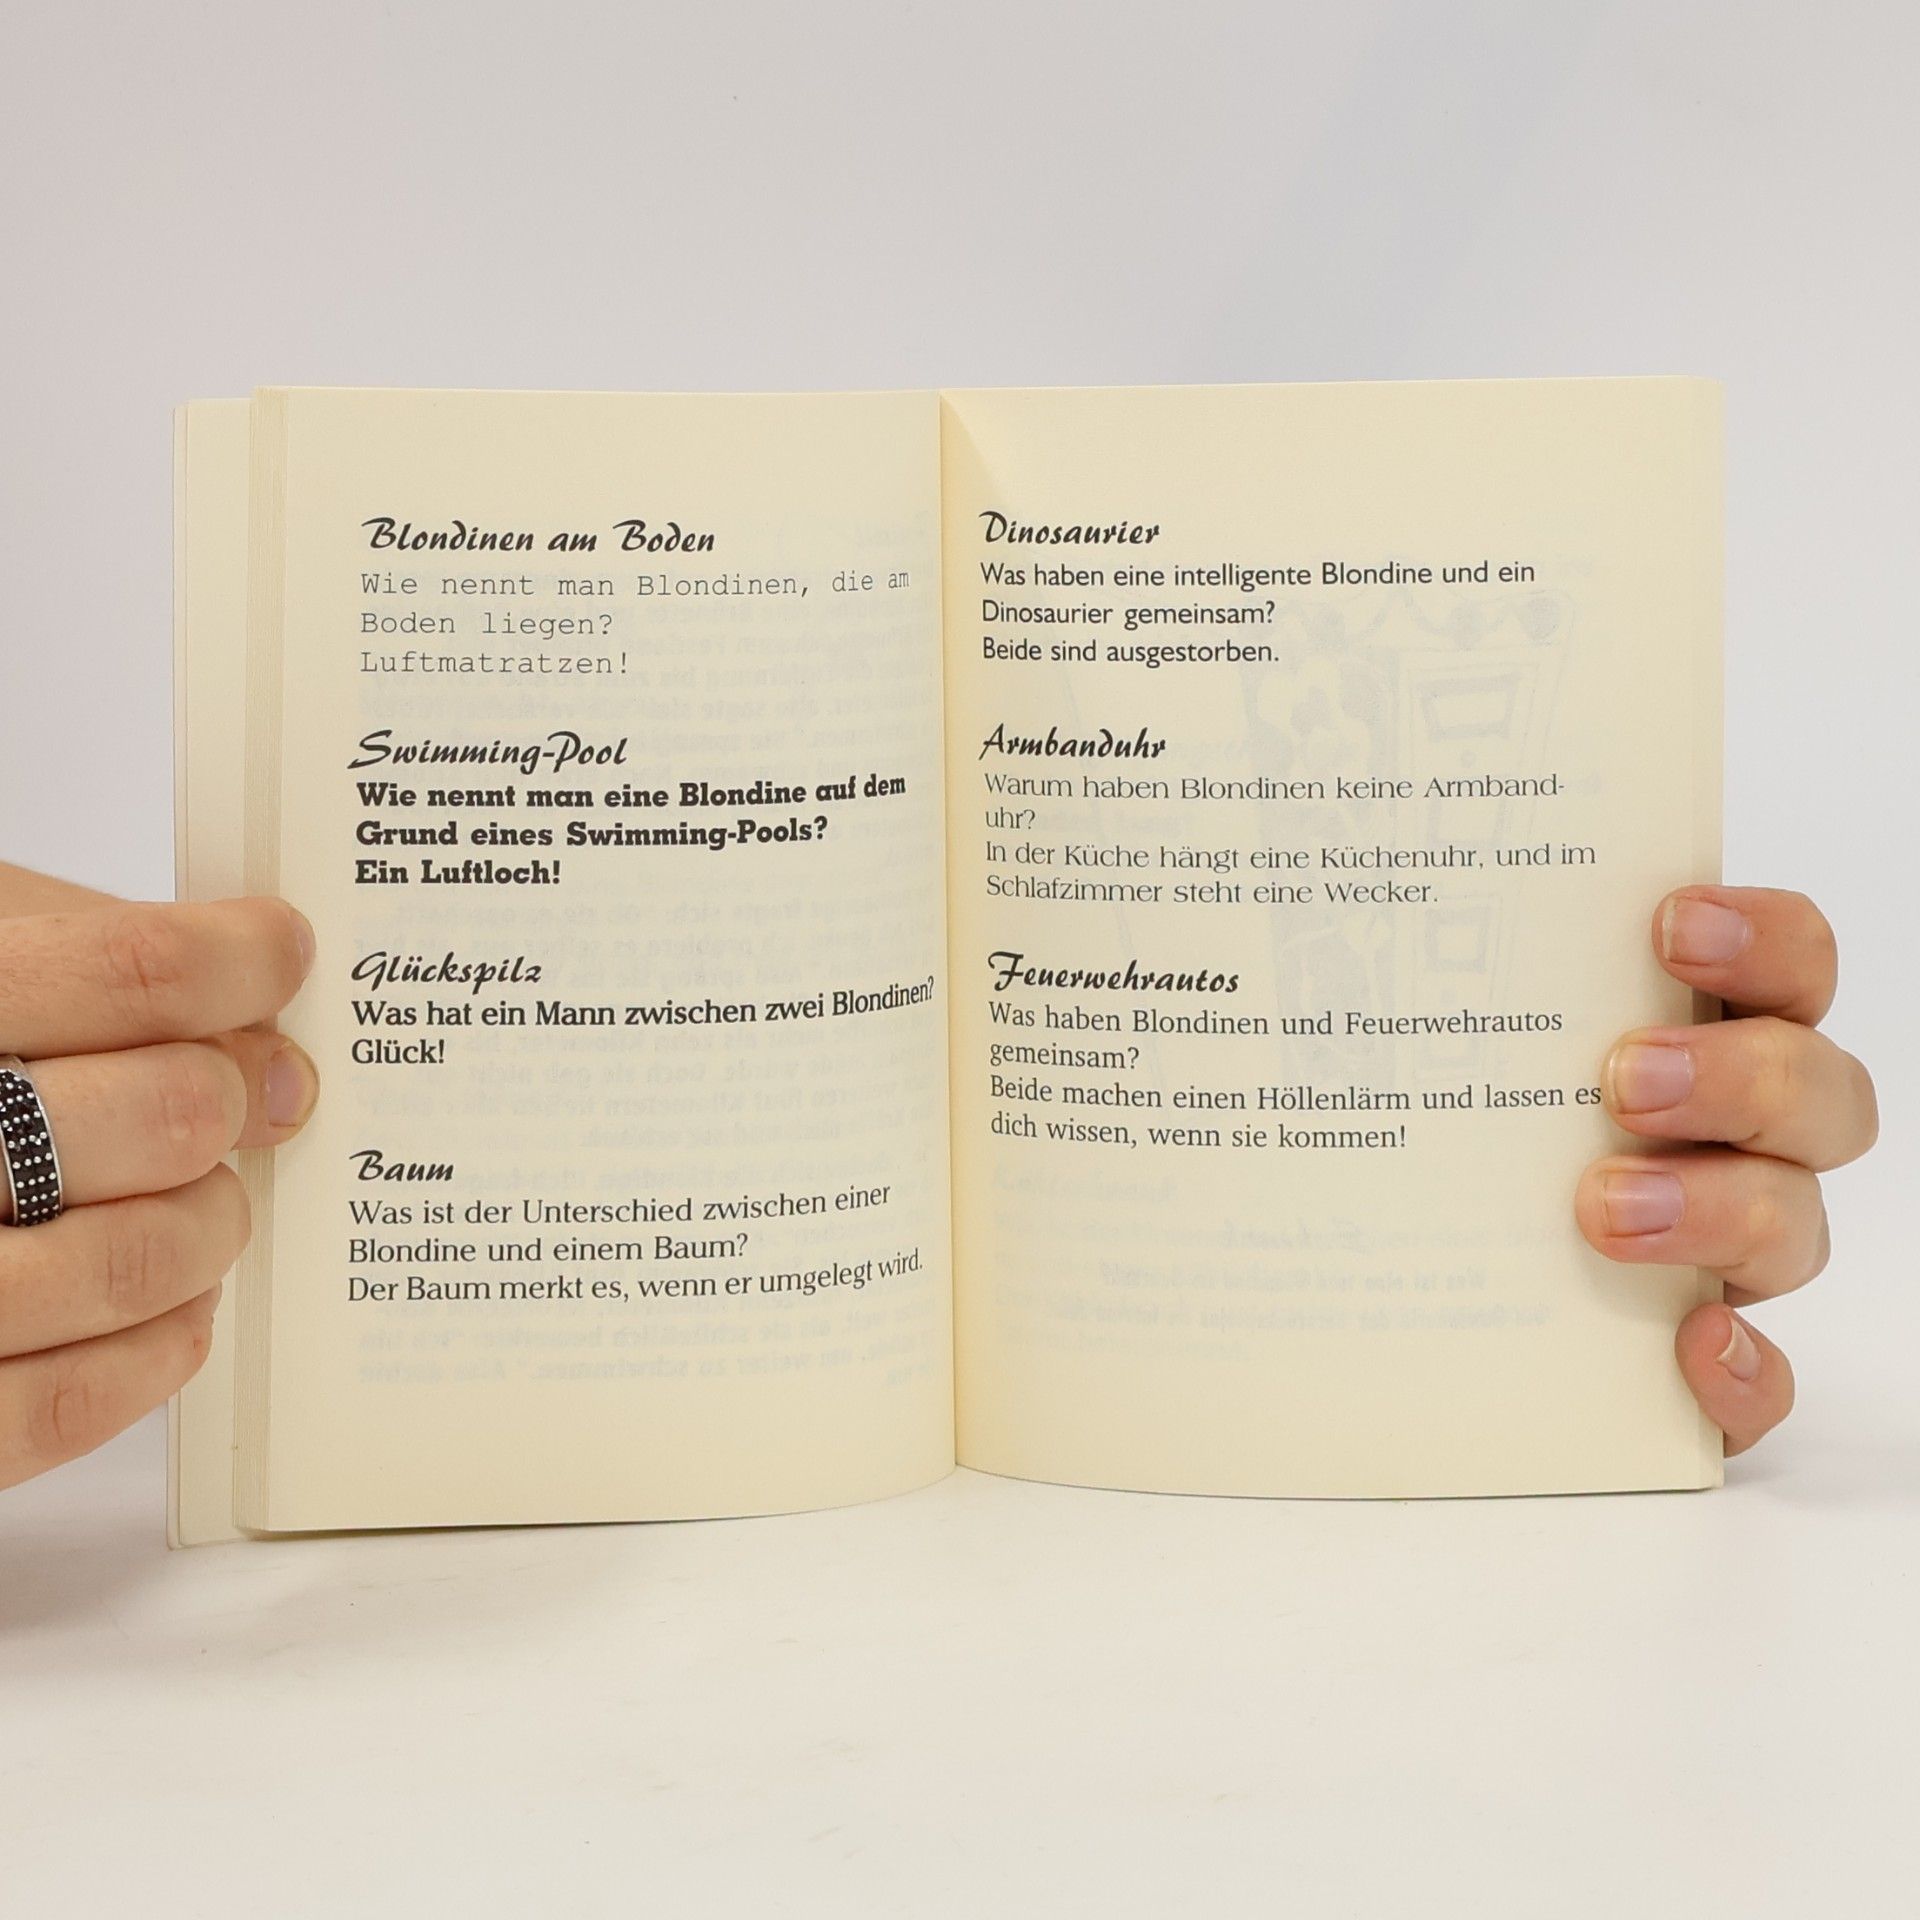 Blondinen am Boden
Wie nennt man Blondinen, die am
Boden liegen?
Luftmatratzen!
Swimming-Pool
Wie nennt man eine Blondine auf dem
Grund eines Swimming-Pools?
Ein Luftloch!
Glückspilz
Was hat ein Mann zwischen zwei Blondinen?
Glück!
Baum
Was ist der Unterschied zwischen einer
Blondine und einem Baum?
Der Baum merkt es, wenn er umgelegt wird.
Dinosaurier
Was haben eine intelligente Blondine und ein
Dinosaurier gemeinsam?
Beide sind ausgestorben.
Armbanduhr
Warum haben Blondinen keine Armband-
uhr?
In der Küche hängt eine Küchenuhr, und im
Schlafzimmer steht eine Wecker.
Feuerwehrautos
Was haben Blondinen und Feuerwehrautos
gemeinsam?
Beide machen einen Höllenlärm und lassen es
dich wissen, wenn sie kommen!